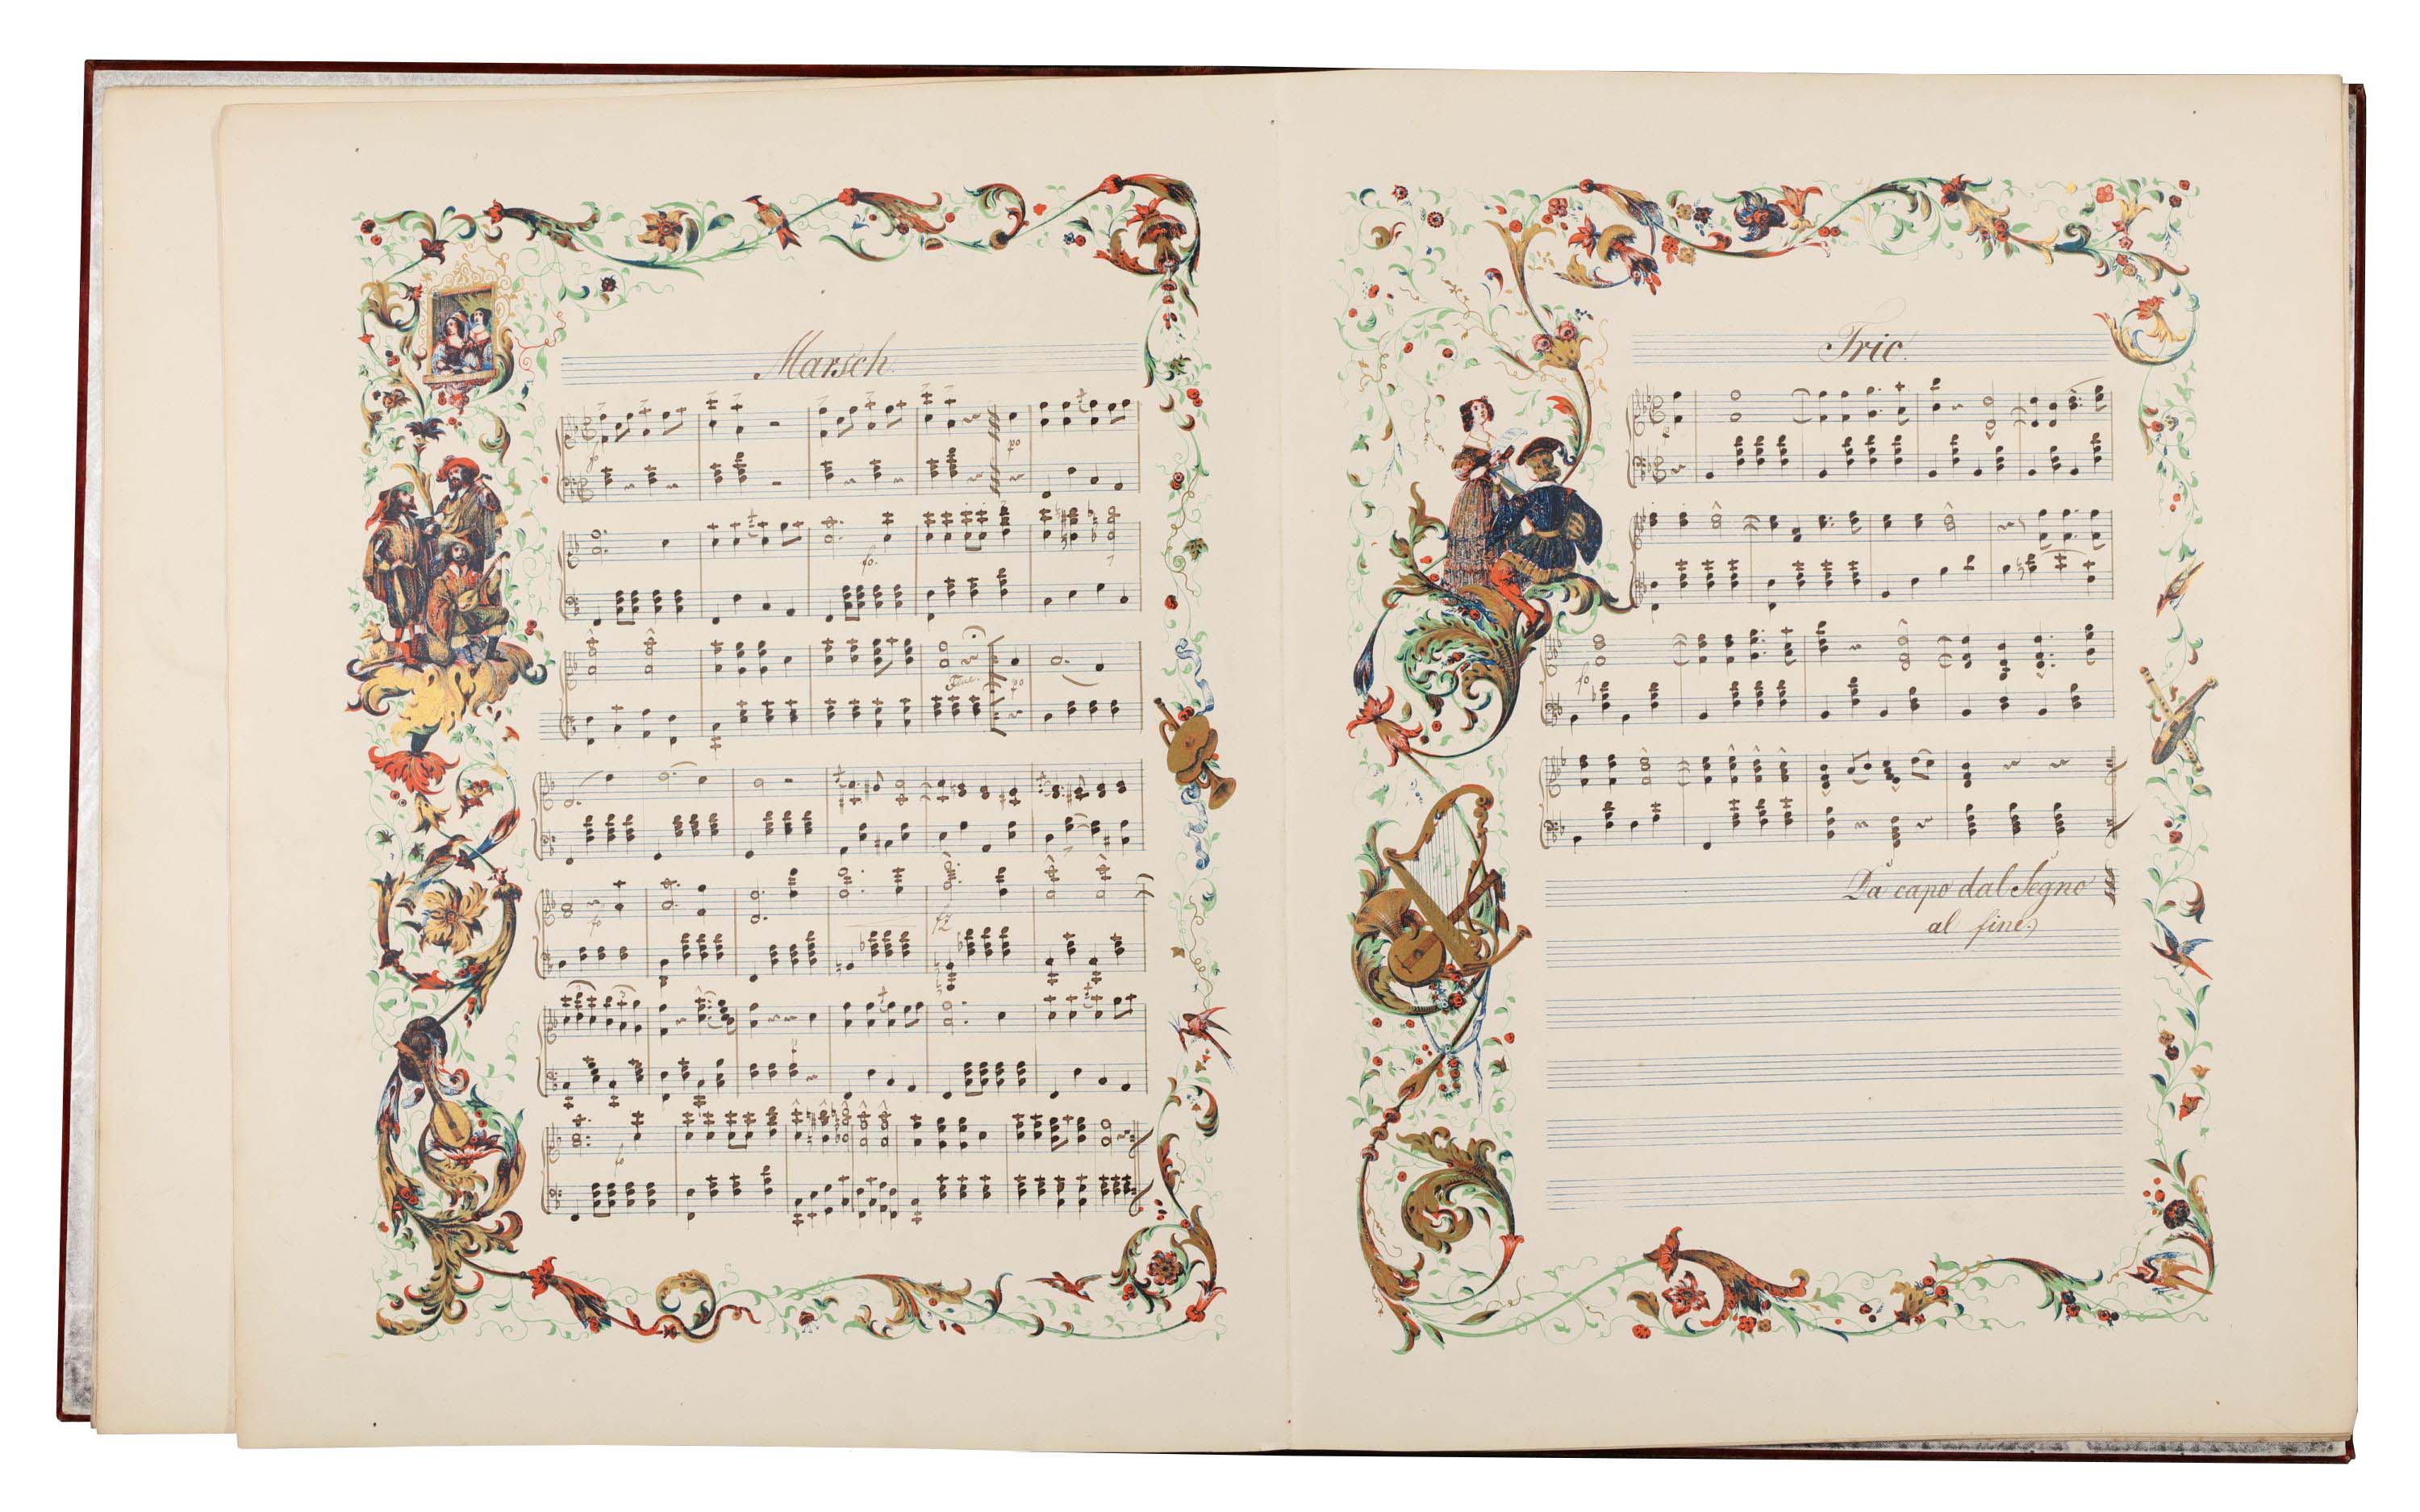 Marsch.
fo
po
fo.
Fine.
po
fo
fz
fo
Trio.
p
fo
Da capo dal Segno
al fine.